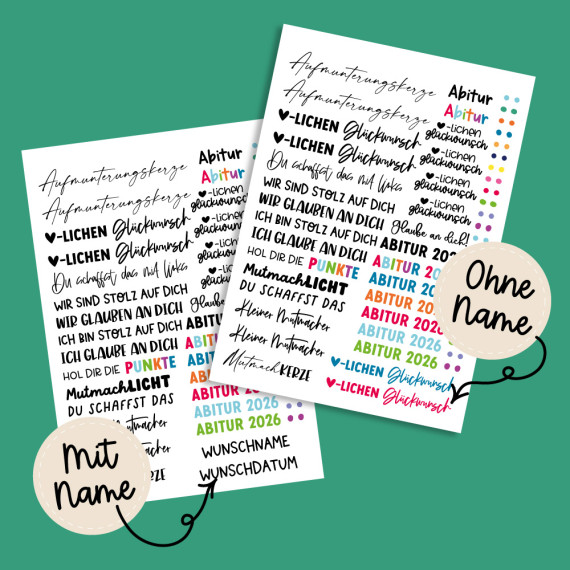 Aufmunterungskerze
Aufmunterungskerze
♥-LICHEN Glückwunsch
♥-LICHEN Glückwunsch
Du schaffst das mit Links
WIR SIND STOLZ AUF DICH
WIR GLAUBEN AN DICH
ICH BIN STOLZ AUF DICH
ICH GLAUBE AN DICH
HOL DIR DIE PUNKTE
MutmachLICHT
DU SCHAFFST DAS
Kleiner Mutmacher
Kleiner Mutmacher
MutmachKERZE
Abitur
Abitur
♥-lichen
glückwunsch
♥-lichen
glückwunsch
♥-lichen
glückwunsch
♥-lichen
glückwunsch
Glaube an dich!
ABITUR 202
ABITUR 202
ABITUR 202
ABITUR 202
ABITUR 2026
ABITUR 2026
ABITUR 2026
♥-LICHEN Glückwunsch
♥-LICHEN Glückwunsch
Ohne
Name
Aufmunterungskerze
Aufmunterungskerze
♥-LICHEN Glückwunsch
♥-LICHEN Glückwunsch
Du schaffst das mit Links
WIR SIND STOLZ AUF DICH
WIR GLAUBEN AN DICH
ICH BIN STOLZ AUF DICH
ICH GLAUBE AN DICH
HOL DIR DIE PUNKTE
MutmachLICHT
DU SCHAFFST DAS
Abitur
Abitur
♥-lichen
glückwunsch
♥-lichen
glückwunsch
♥-lichen
glückwunsch
♥-lichen
glückwunsch
Glaube
ABITUR 2026
ABITUR 2026
WUNSCHNAME
WUNSCHDATUM
Mit
Name